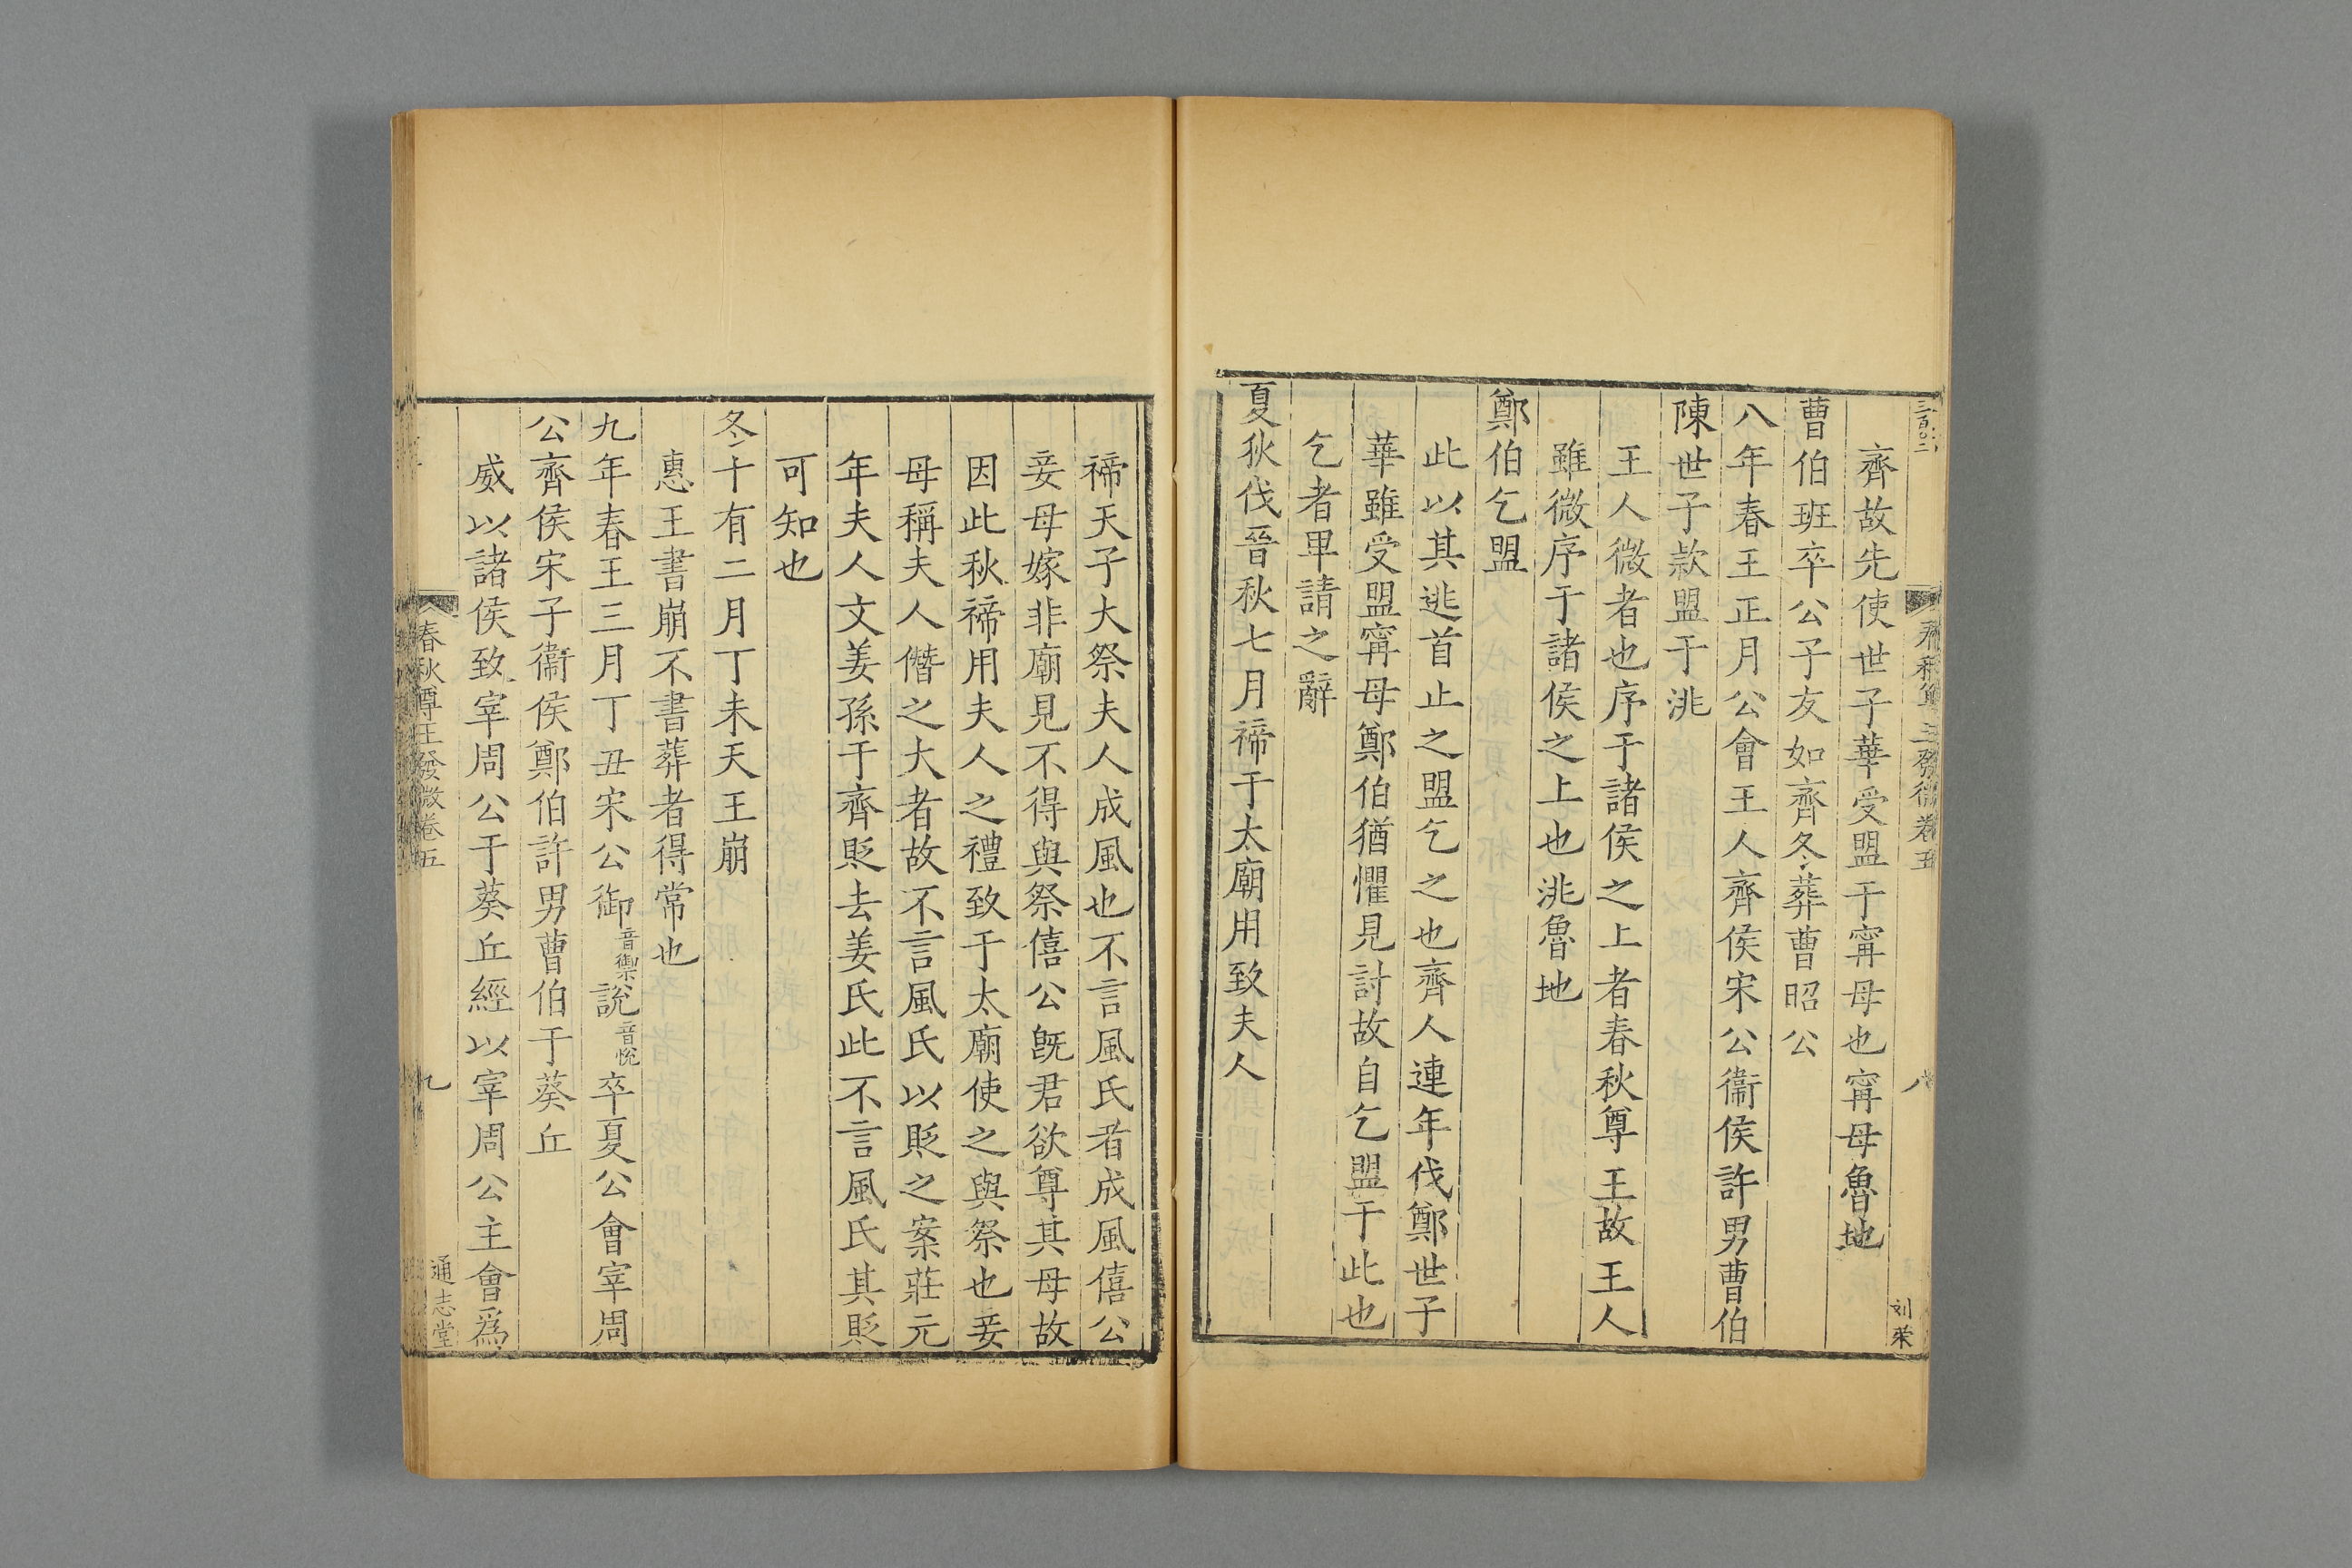 三百〇二
春秋尊王發微卷五
八
刘荣
齊故先使世子華受盟于甯母也甯母魯地
曹伯班卒公子友如齊冬葬曹昭公
八年春王正月公會王人齊侯宋公衞侯許男曹伯
陳世子款盟于洮
王人微者也序于諸侯之上者春秋尊王故王人
雖微序于諸侯之上也洮魯地
鄭伯乞盟
此以其逃首止之盟乞之也齊人連年伐鄭世子
華雖受盟甯母鄭伯猶懼見討故自乞盟于此也
乞者畢請之辭
夏狄伐晉秋七月禘于太廟用致夫人
禘天子大祭夫人成風也不言風氏者成風僖公
妾母嫁非廟見不得與祭僖公旣君欲尊其母故
因此秋禘用夫人之禮致于太廟使之與祭也妾
母稱夫人僭之大者故不言風氏以貶之案莊元
年夫人文姜孫于齊貶去姜氏此不言風氏其貶
可知也
冬十有二月丁未天王崩
惠王書崩不書葬者得常也
九年春王三月丁丑宋公御音禦說音悅卒夏公會宰周
公齊侯宋子衞侯鄭伯許男曹伯于葵丘
威以諸侯致宰周公于葵丘經以宰周公主會爲
春秋尊王發微卷五
九
通志堂